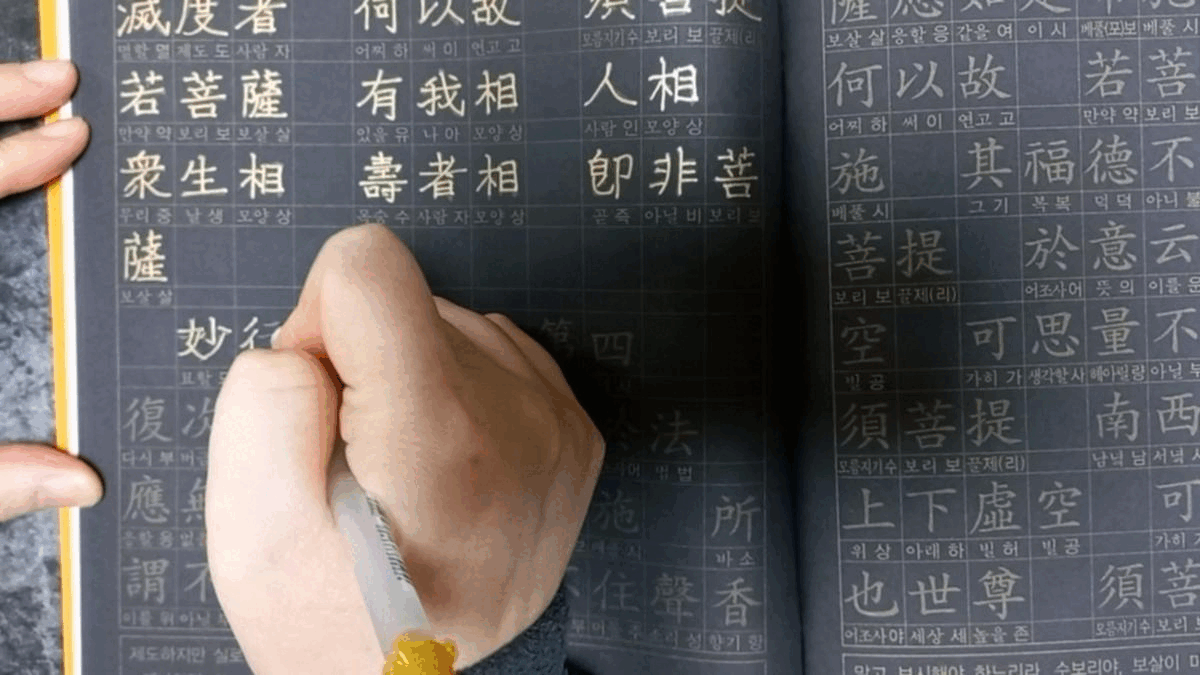 滅度者 何以故 須菩提
멸할 멸 제도 도 사람 자 어찌 하 써 이 연고 고 모름지기 수 보리 보 끌제(리)
若菩薩 有我相 人相
만약 약 보리 보 보살 살 있을 유 나 아 모양 상 사람 인 모양 상
衆生相 壽者相 卽非菩
무리 중 날 생 모양 상 목숨 수 사람 자 모양 상 곧 즉 아닐 비 보리 보
薩
보살 살
妙行 第四
묘할
復次 於法
다시 부 어조사어 법 법
應無 施 所
응할 응 베풀 시 바 소
謂不 住聲香
이를 위 아닐 소리 성 향기 향
제도하지만 실로
薩應如是 布施
보살 살 응할 응 같을 여 이 시 베풀(포)보 베풀 시
何以故 若菩
어찌 하 써 이 연고 고 만약 약 보리 보
施 其福德不
베풀 시 그 기 복 복 덕 덕 아니 불
菩提 於意云
보리 보 끌제(리) 어조사어 뜻 의 이를 운
空 可思量不
빌 공 가히 가 생각할 사 헤아릴 량 아닐 부
須菩提 南西
모름지기수 보리 보 끌제(리) 남녘 남 서녘 서
上下虛空 可
위 상 아래 하 빌 허 빌 공 가히 가
也世尊 須菩
어조사 야 세상 세 높을 존 모름지기수 보리 보
말고 보시해야 하느니라. 수보리야, 보살이